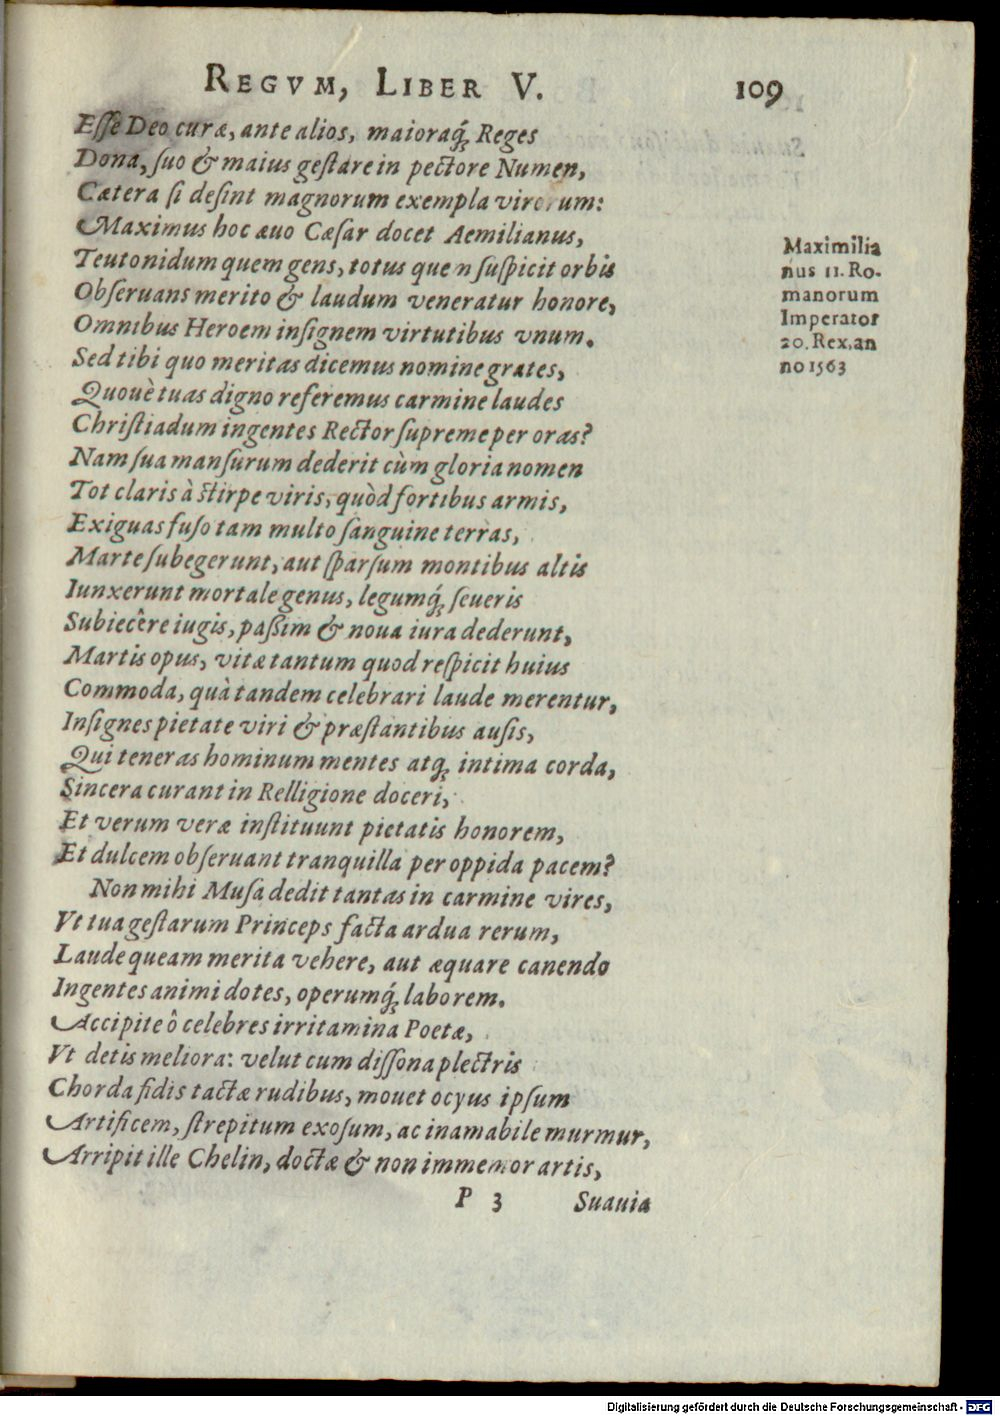 REGVM, LIBER V. 109
Eſſe Deo curæ, ante alios, maioraq́; Reges
Dona, ſuo & maius geſtare in pectore Numen,
Cætera ſi deſint magnorum exempla virorum:
Maximus hoc æuo Cæſar docet Aemilianus,
Teutonidum quem gens, totus quem ſuſpicit orbis
Obſeruans merito & laudum veneratur honore,
Omnibus Heroem inſignem virtutibus vnum.
Sed tibi quo meritas dicemus nomine grates,
Quouè tuas digno referemus carmine laudes
Chriſtiadum ingentes Rector ſupreme per oras?
Nam ſua manſurum dederit cùm gloria nomen
Tot claris à ſtirpe viris, quòd fortibus armis,
Exiguas fuſo tam multo ſanguine terras,
Marte ſubegerunt, aut ſparſum montibus altis
Iunxerunt mortale genus, legumq́; ſeueris
Subiecêre iugis, paßim & noua iura dederunt,
Martis opus, vitæ tantum quod reſpicit huius
Commoda, quà tandem celebrari laude merentur,
Inſignes pietate viri & præſtantibus auſis,
Qui teneras hominum mentes atq; intima corda,
Sincera curant in Relligione doceri,
Et verum veræ inſtituunt pietatis honorem,
Et dulcem obſeruant tranquilla per oppida pacem?
Non mihi Muſa dedit tantas in carmine vires,
Vt tua geſtarum Princeps facta ardua rerum,
Laude queam merita vehere, aut æquare canendo
Ingentes animi dotes, operumq́; laborem.
Accipite ô celebres irritamina Poetæ,
Vt detis meliora: velut cum diſſona plectris
Chorda fidis tactæ rudibus, mouet ocyus ipſum
Artificem, ſtrepitum exoſum, ac inamabile murmur,
Arripit ille Chelin, doctæ & non immemor artis,
P 3 Suauia
Maximilia
nus 11. Ro-
manorum
Imperator
20. Rex, an
no 1563
Digitalisierung gefördert durch die Deutsche Forschungsgemeinschaft - DFG